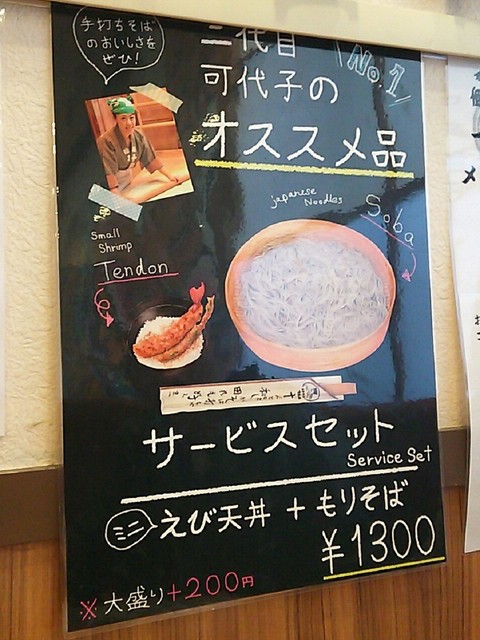 手打ちそば
のおいしさを
ぜひ！
三代目
可代子の
No.1
オススメ品
japanese
Noodles
Soba
Small
Shrimp
Tendon
サービスセット
Service Set
ミニ えび天丼 + もりそば
¥1300
※大盛り+200円